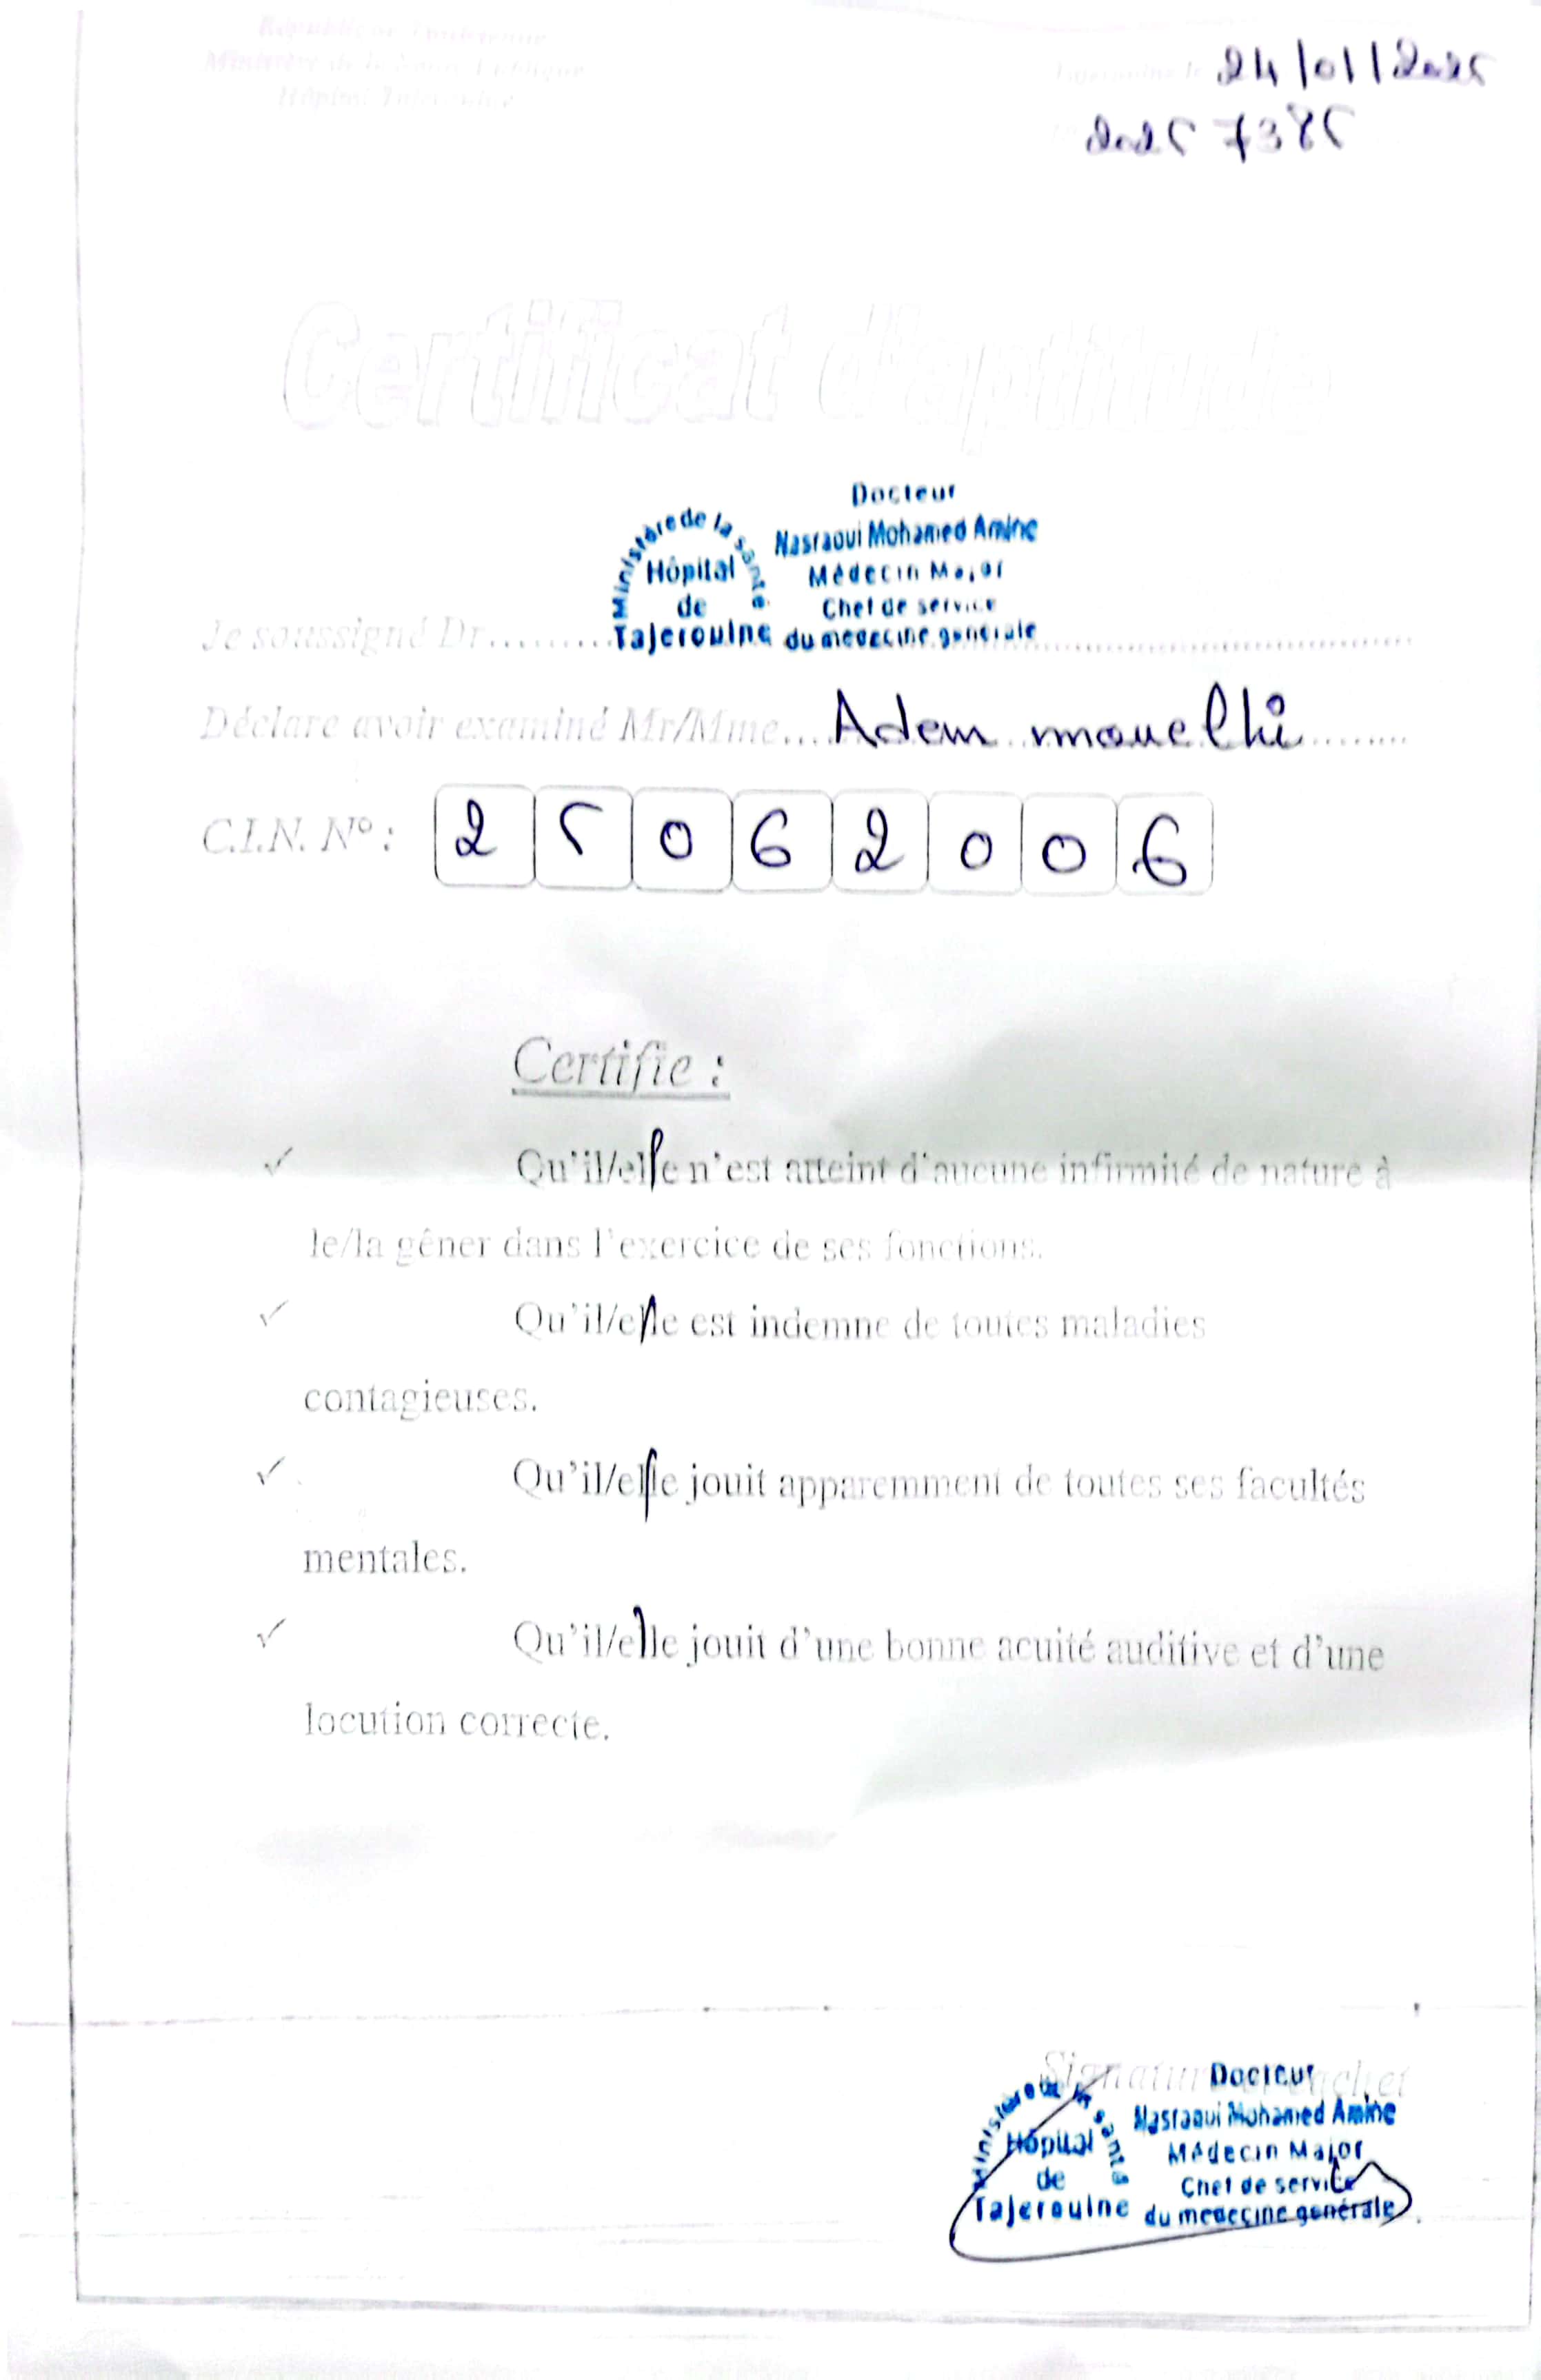 République Tunisienne
Ministère de la Santé Publique
Hôpital Tajerouine
Tajerouine le 24/01/2025
Certificat d'aptitude
Docteur
Nasraoui Mohamed Amine
Médecin Major
Chef de service
du médecine générale
Ministère de la santé
Hôpital
de
Tajerouine
Je soussigné Dr
Déclare avoir examiné Mr/Mme Adem mouelhi
C.I.N. N° : 2 5 0 6 2 0 0 6
Certifie :
✓ Qu'il/elle n'est atteint d'aucune infirmité de nature à
le/la gêner dans l'exercice de ses fonctions.
✓ Qu'il/elle est indemne de toutes maladies
contagieuses.
✓ Qu'il/elle jouit apparemment de toutes ses facultés
mentales.
✓ Qu'il/elle jouit d'une bonne acuité auditive et d'une
locution correcte.
Signature et cachet
Docteur
Nasraoui Mohamed Amine
Médecin Major
Chef de service
du médecine générale
Ministère de la santé
Hôpital
de
Tajerouine